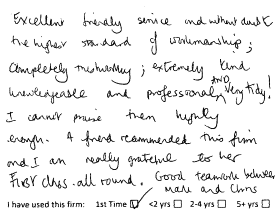 Excellent friendly service and without doubt
the highest standard of workmanship;
completely trustworthy; extremely kind
knowledgeable and professional, AND very tidy!
I cannot praise them highly
enough. A friend recommended this firm
and I am really grateful to her
FIRST class. all round. Good teamwork between
Marc and Chris
I have used this firm: 1st Time ☑ <2 yrs ☐ 2-4 yrs ☐ 5+ yrs